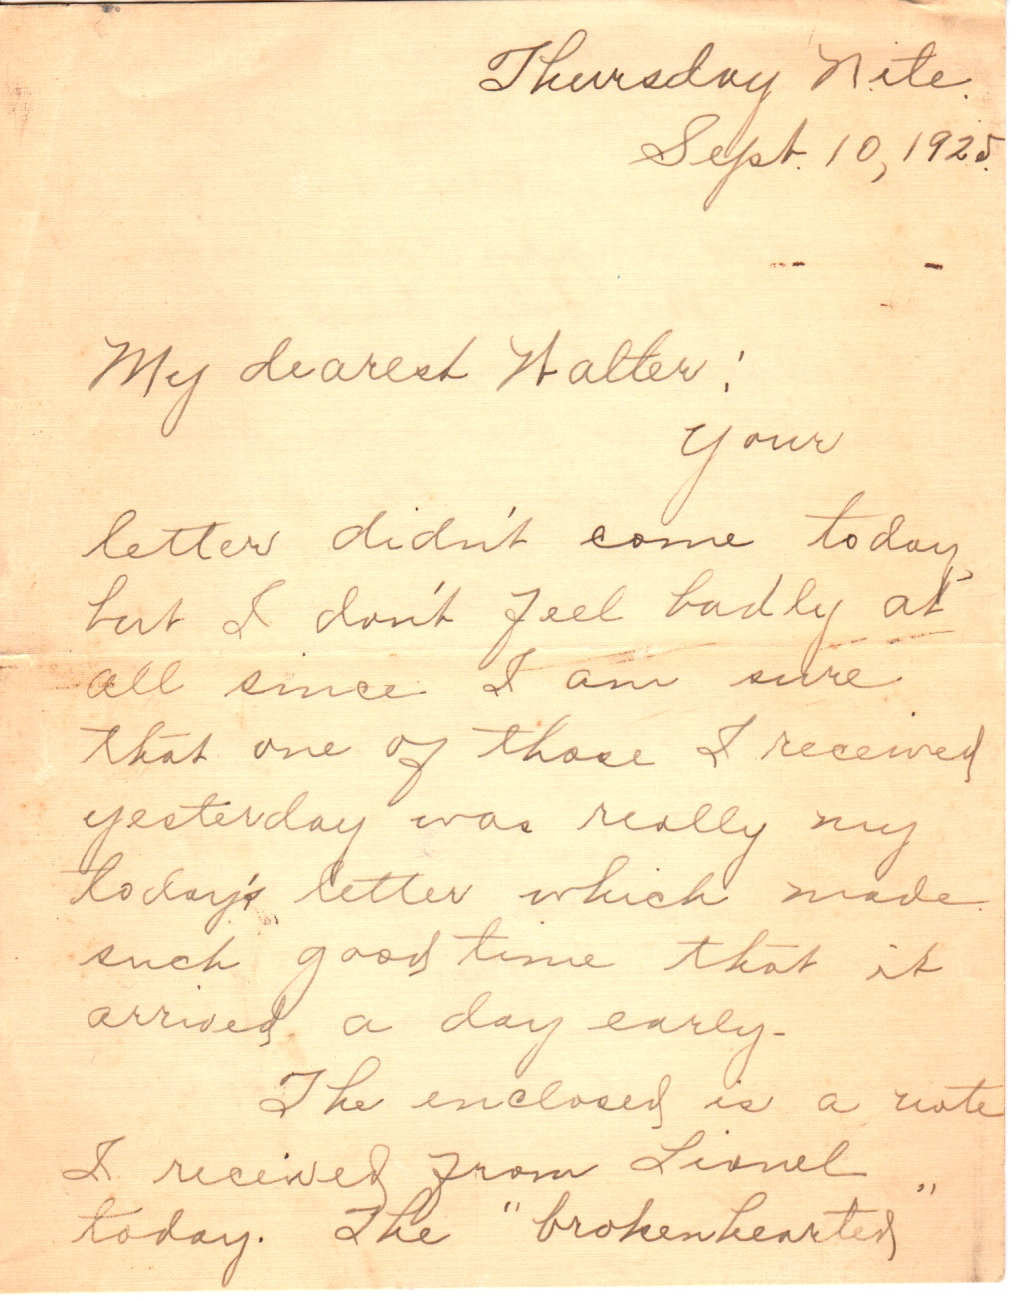 Thursday Nite.
Sept. 10, 1925.
My dearest Walter:
Your
letter didn't come today,
but I don't feel badly at
all since I am sure
that one of those I received
yesterday was really my
today's letter which made
such good time that it
arrived a day early-
The enclosed is a note
I received from Lionel
today. The "brokenhearted"